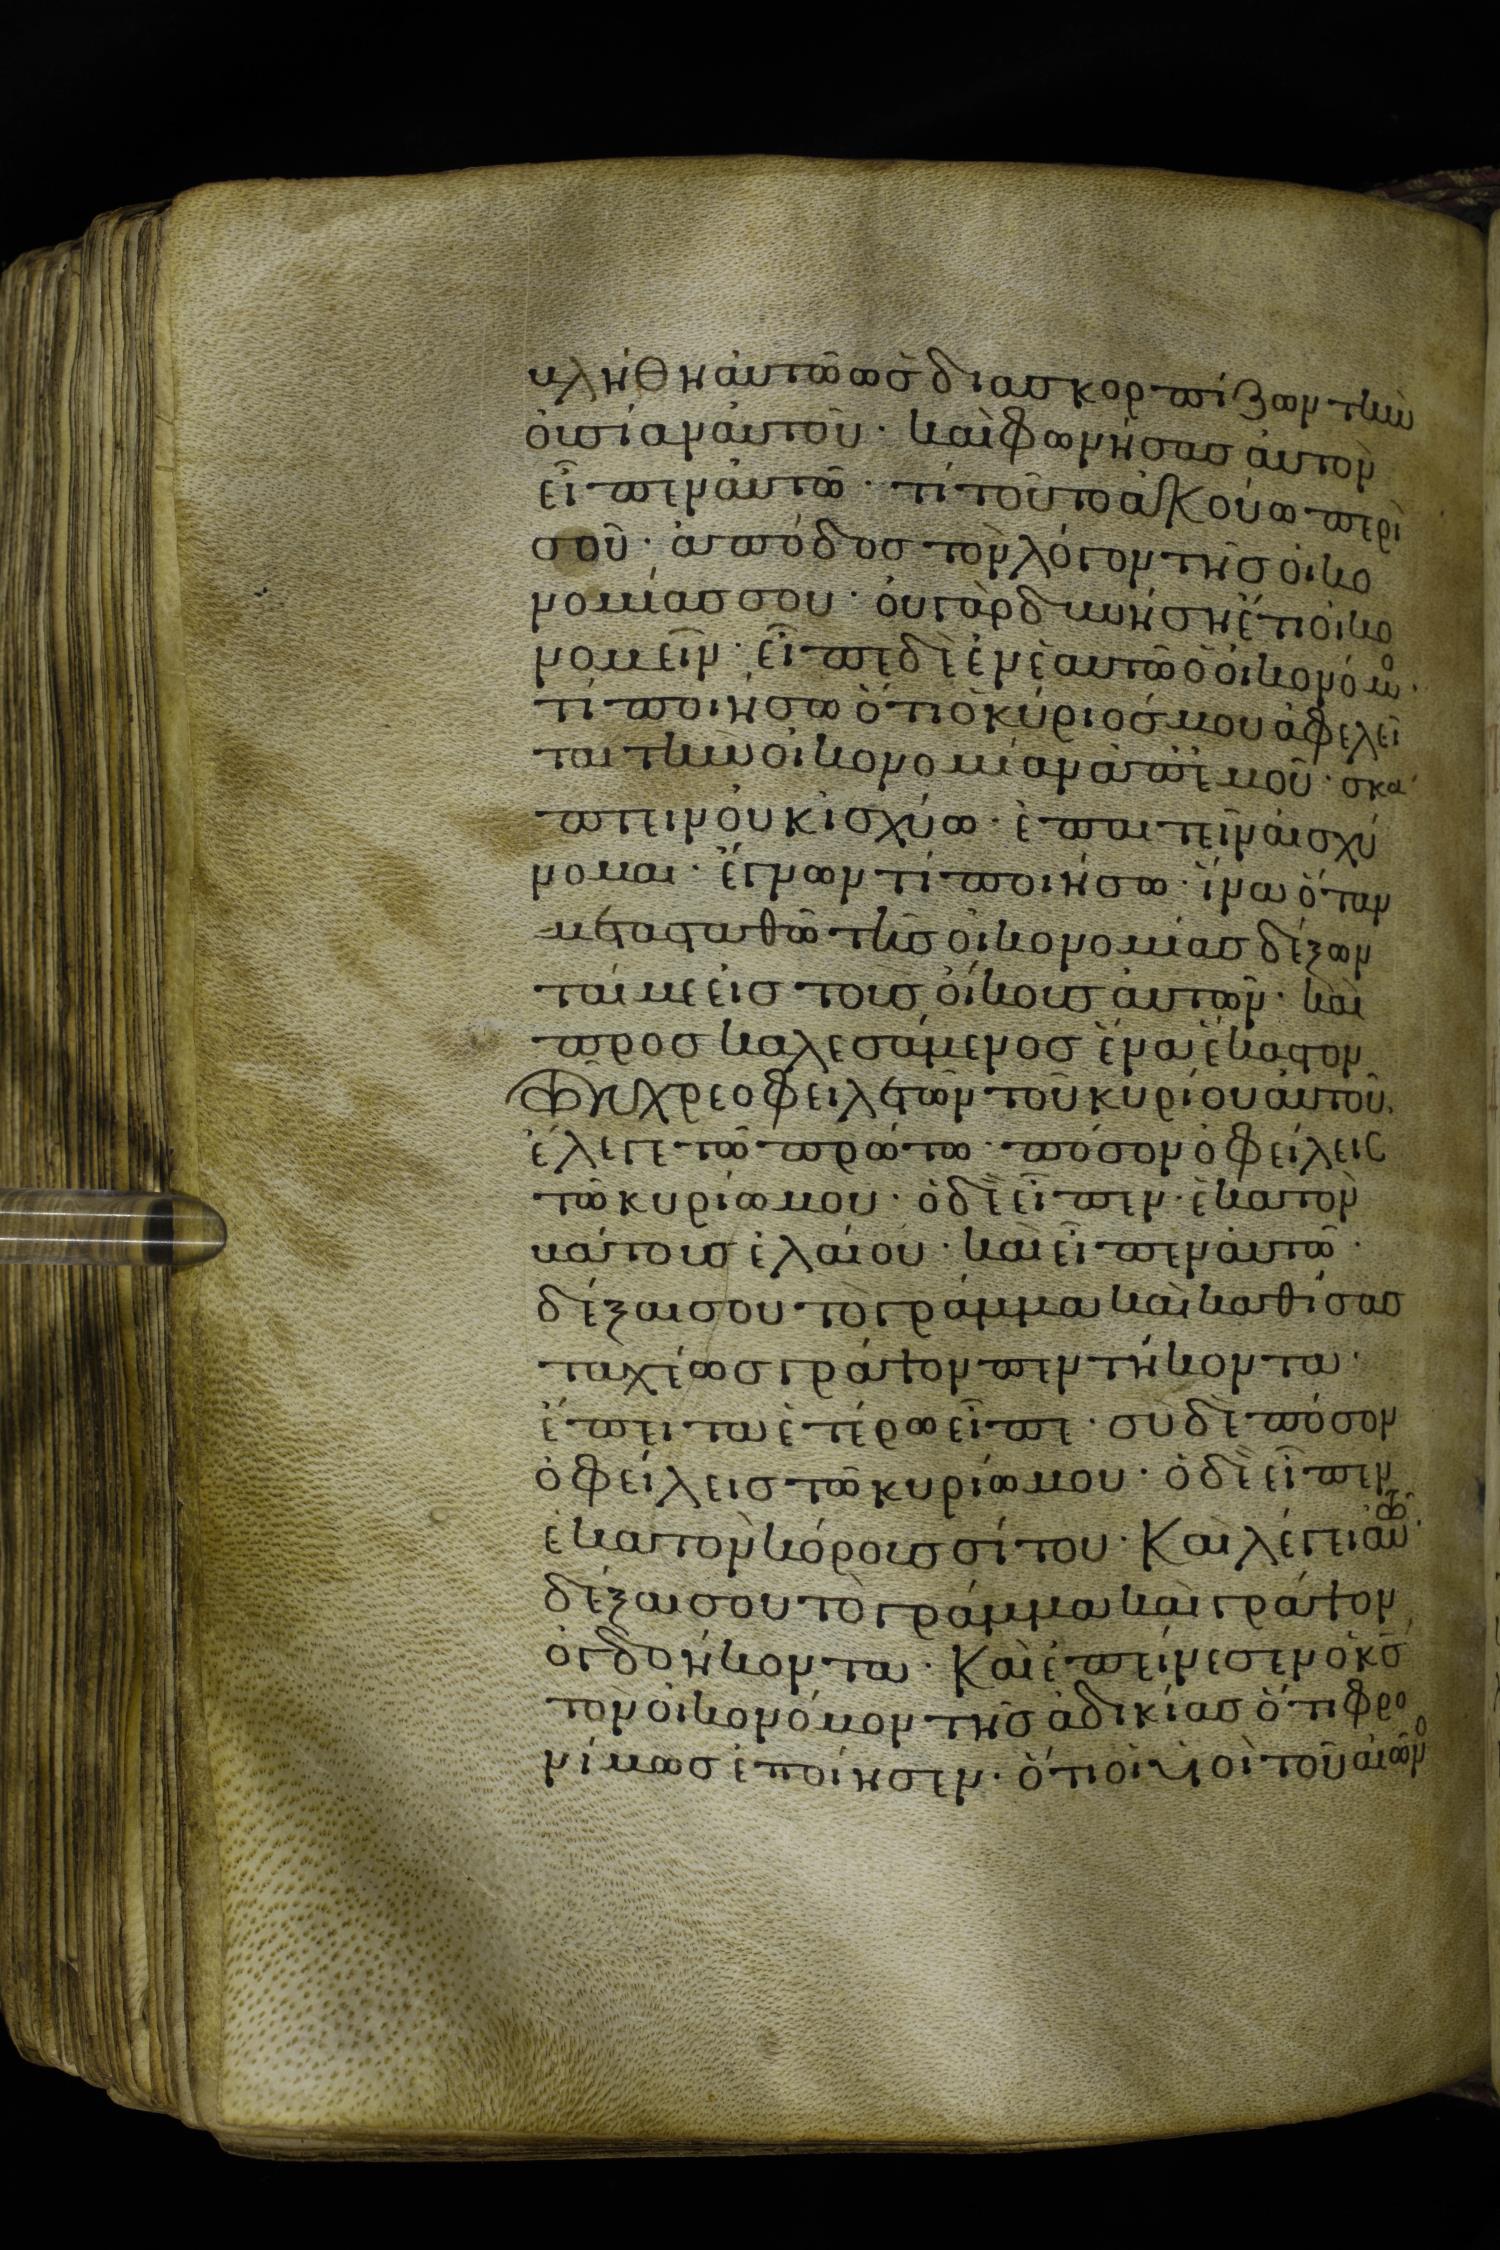 βλήθη αὐτῶ ὡς διασκορπίζων τὴν
οὐσίαν αὐτοῦ· καὶ φωνήσας αὐτὸν
εἶπεν αὐτῶ· τί τοῦτο ἀκούω περὶ
σοῦ· ἀπόδος τὸν λόγον τῆς οἰκο
νομίας σου· οὐ γὰρ δυνήση ἔτι οἰκο
νομεῖν· εἶπε δὲ ἐν ἑαυτῶ ὁ οἰκονόμο·
τί ποιήσω ὅτι ὁ κύριός μου ἀφελεῖ
ται τὴν οἰκονομίαν ἀπ' ἐμοῦ· σκά
πτειν οὐκ ἰσχύω· ἐπαιτεῖν αἰσχύ
νομαι· ἔγνων τί ποιήσω· ἵνα ὅταν
μετασταθῶ τῆς οἰκονομίας δέξων
ταί με εἰς τοὺς οἴκους αὐτῶν· καὶ
προσκαλεσάμενος ἕνα ἕκαστον
τῶν χρεοφειλετῶν τοῦ κυρίου αὐτοῦ·
ἔλεγε τῶ πρώτω· πόσον ὀφείλεις
τῶ κυρίω μου· ὁ δὲ εἶπεν· ἑκατὸν
βάτους ἐλαίου· καὶ εἶπεν αὐτῶ·
δέξαι σου τὸ γράμμα καὶ καθίσας
ταχέως γράψον πεντήκοντα·
ἔπειτα ἑτέρω εἶπε· σὺ δὲ πόσον
ὀφείλεις τῶ κυρίω μου· ὁ δὲ εἶπεν
ἑκατὸν κόρους σίτου· Καὶ λέγει αὐτῶ·
δέξαι σου τὸ γράμμα καὶ γράψον
ὀγδοήκοντα· Καὶ ἐπείνεσεν ὁ κς
τὸν οἰκονόμον τῆς ἀδικίας ὅτι φρο
νίμως ἐποίησεν· ὅτι οἱ υἱοὶ τοῦ αἰῶνο